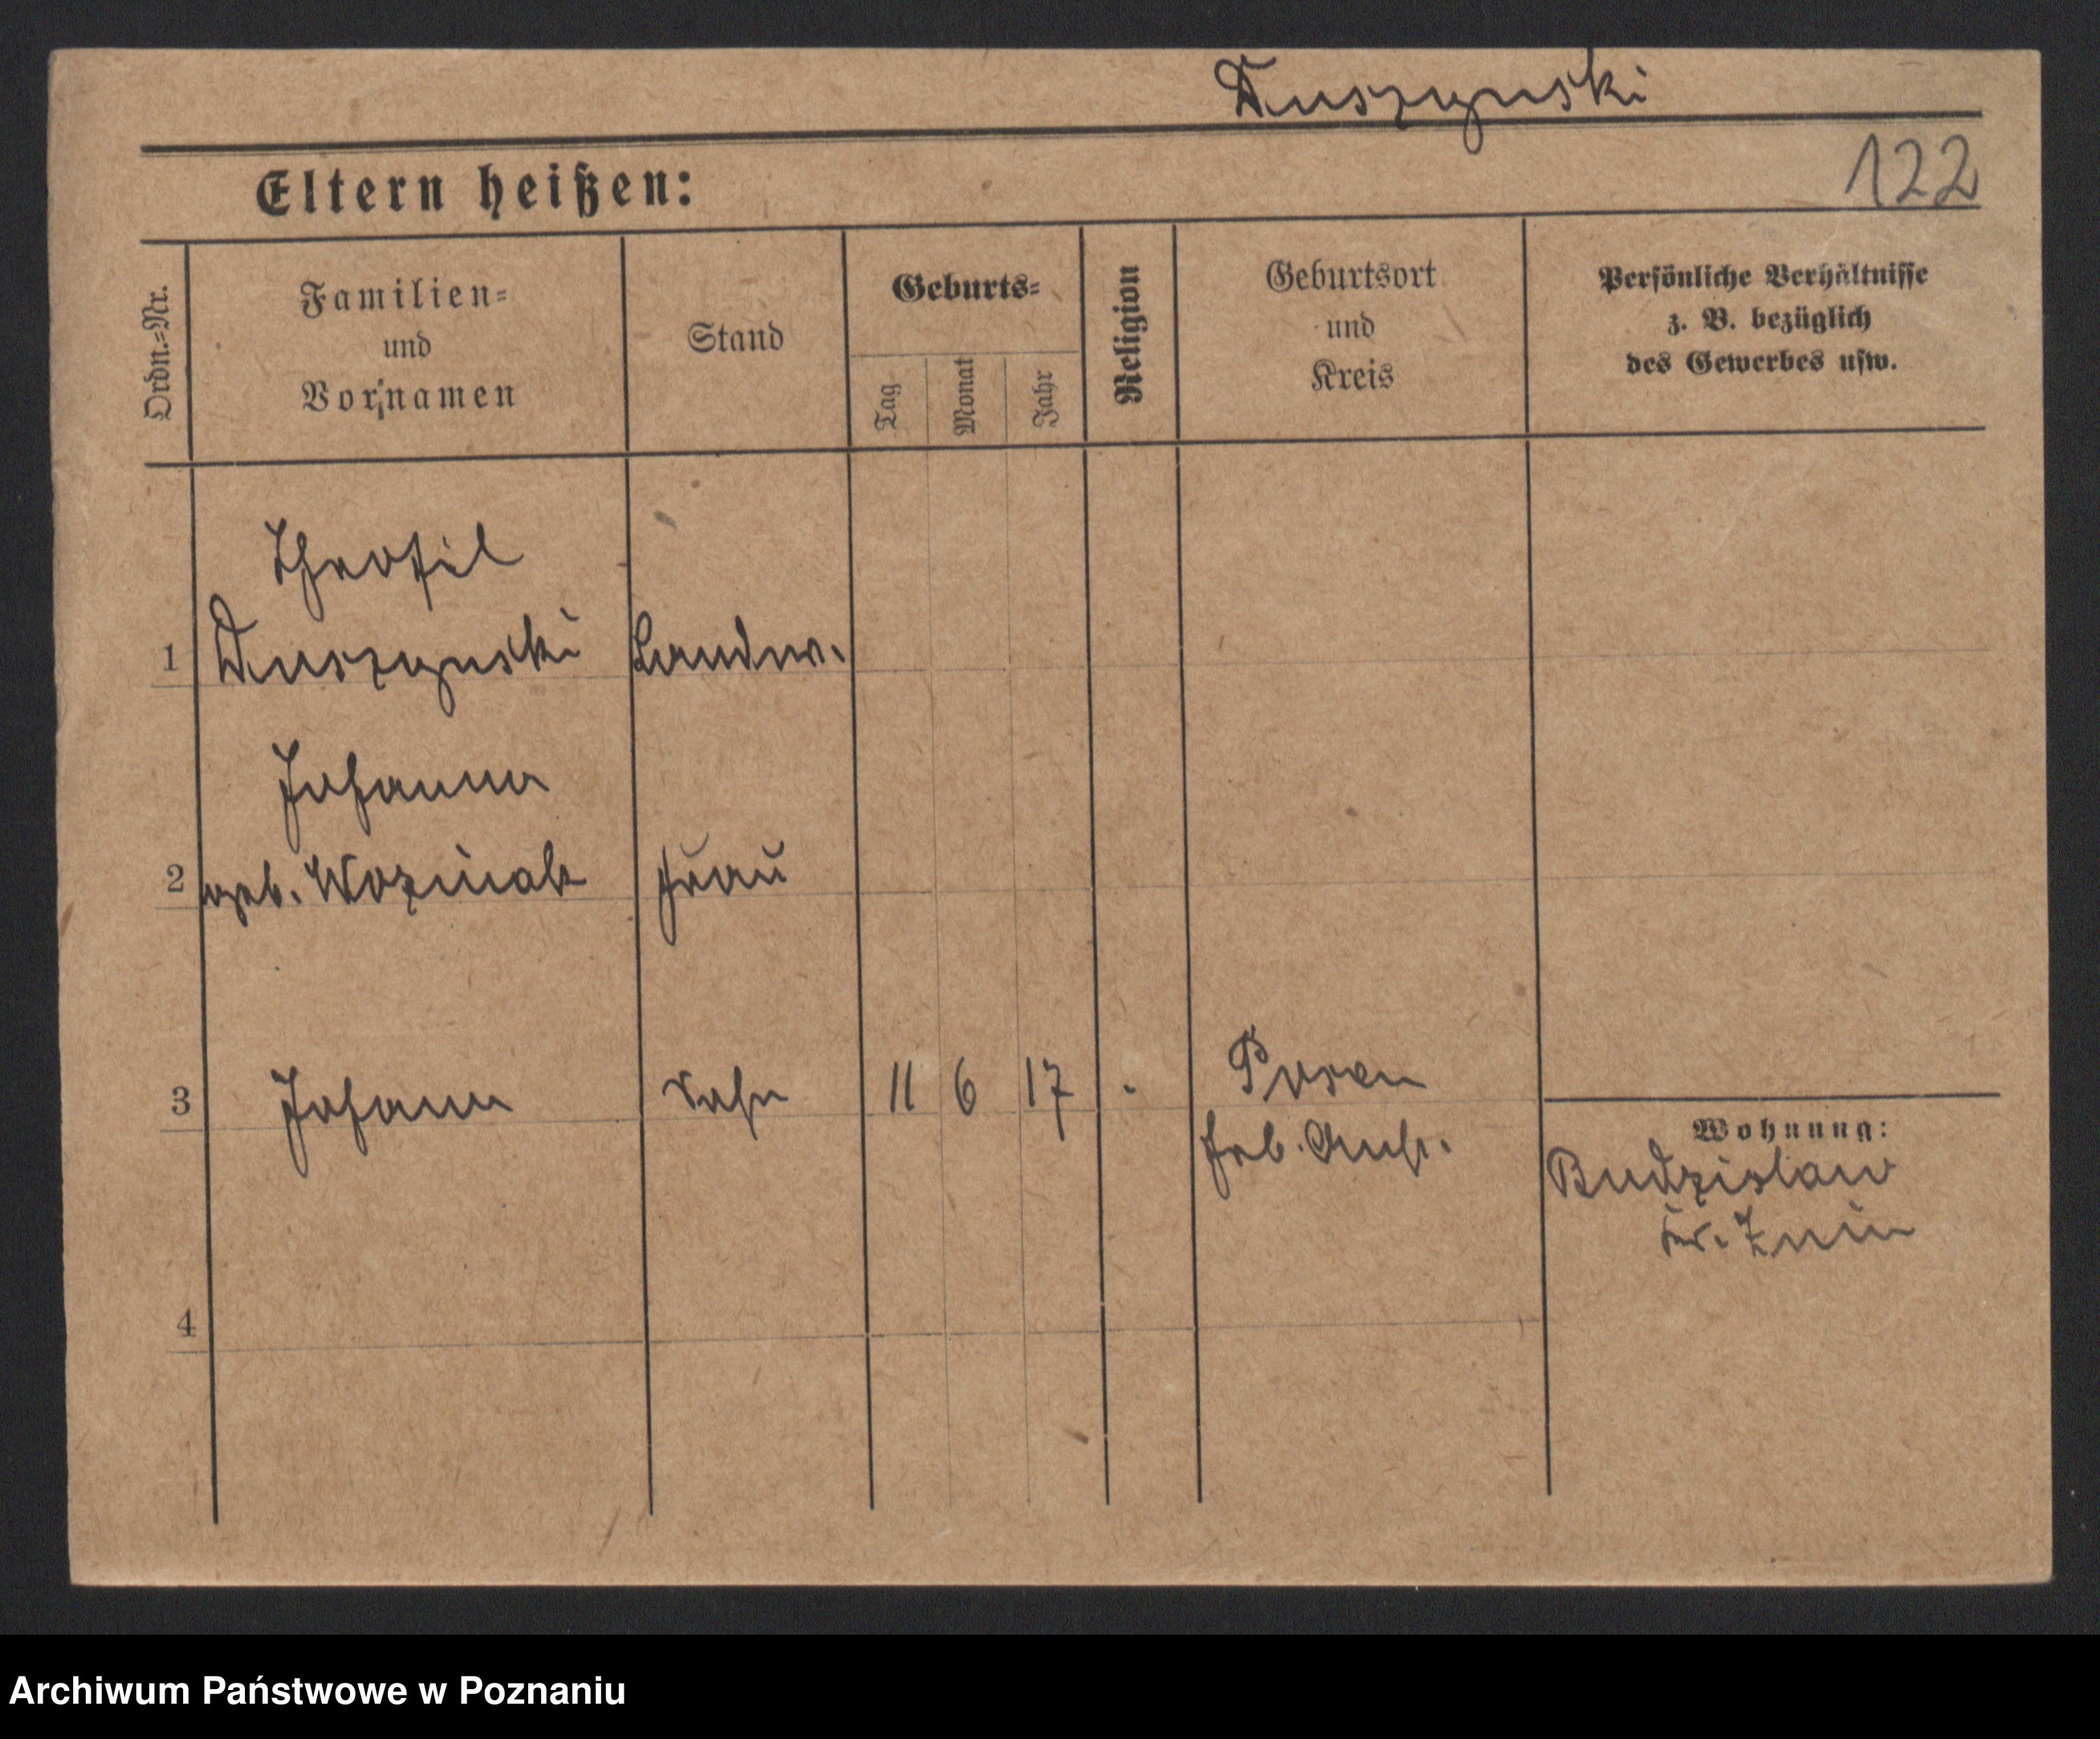 Duszynski
122
Eltern heißen:
Ordn.-Nr.
Familien-
und
Vornamen
Stand
Geburts-
Tag
Monat
Jahr
Religion
Geburtsort
und
Kreis
Persönliche Verhältnisse
z. B. bezüglich
des Gewerbes usw.
Theofil
1 Duszynski Landw.
Johanna
2 geb. Wozniak Frau
3 Johann Sohn 11 6 17 - Posen
Geb. Anst.
Wohnung:
Budzislaw
Kr. Znin
4
Archiwum Państwowe w Poznaniu